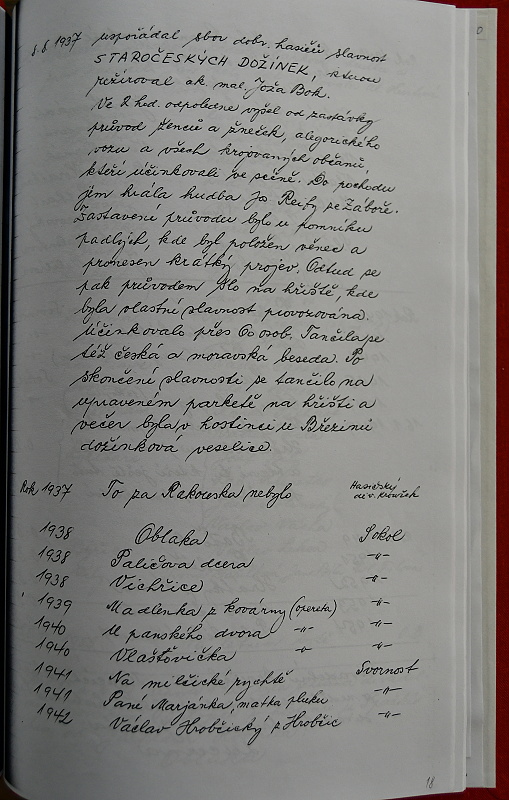 8.8 1937 uspořádal sbor dobr. hasičů slavnost
STAROČESKÝCH DOŽÍNEK, kterou
režíroval ak. mal. Joža Bok.
Ve 2 hod. odpoledne vyšel od zastávky
průvod ženců a žneček, alegorického
vozu a všech krojovaných občanů,
kteří účinkovali ve scéně. Do pochodu
jim hrála hudba Jos Reify ze Záboře.
Zastavení průvodu bylo u pomníku
padlých, kde byl položen věnec a
pronesen krátký projev. Odtud se
pak průvodem šlo na hřiště, kde
byla vlastní slavnost provozována.
Účinkovalo přes 60 osob. Tančila se
též česká a moravská beseda. Po
skončení slavnosti se tančilo na
upraveném parketě na hřišti a
večer byla v hostinci u Březinů
dožínková veselice.
Rok 1937 To za Rakouska nebylo Hasičský
1938 Oblaka Sokol
1938 Paličova dcera -"-
1938 Vichřice -"-
1939 Madlenka z kovárny (opereta) -"-
1940 U panského dvora -"- -"-
1940 Vlaštovička -"- -"-
1941 Na milčické rychtě Svornost
1941 Paní Marjánka, matka pluku -"-
1942 Václav Hrobčický z Hrobčic -"-
18